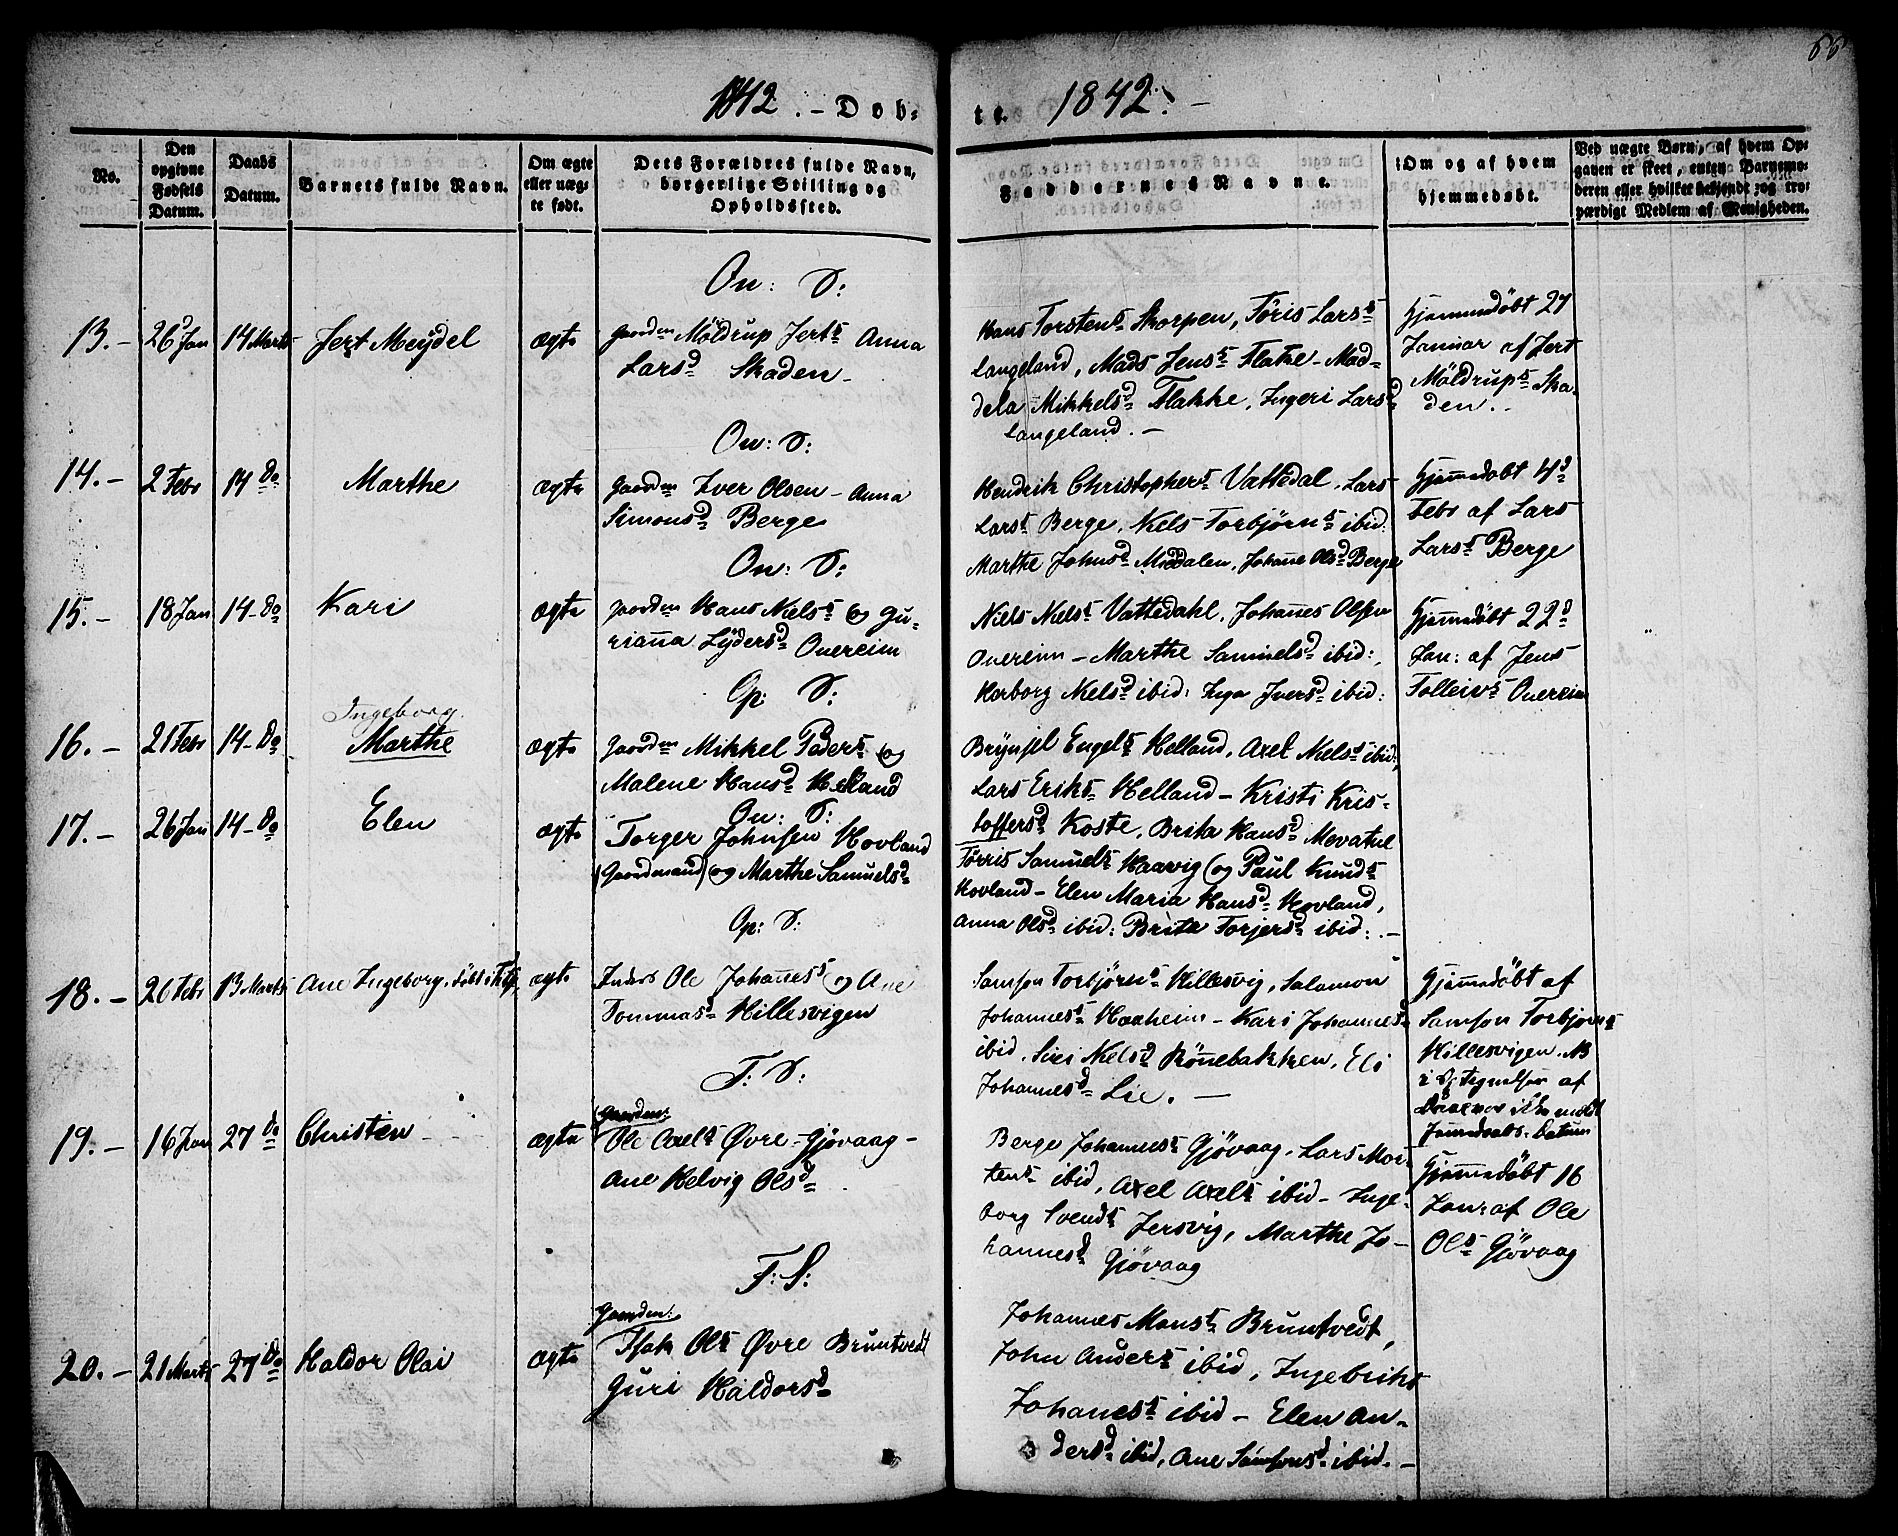 66
1842. - Dob-
te. 1842. -
No.
Den opgivne Fødsels Datum.
Daabs Datum.
Barnets fulde Navn.
Om ægte eller uægte født.
Dets Forældres fulde Navn, borgerlige Stilling og Opholdssted.
Faddernes Navne.
Om og af hvem hjemmedøbt.
Ved uægte Børn, af hvem Opgaven er skeet, enten Barnemoderen eller hvilket bekjendt og troværdigt Medlem af Menigheden.
On: S:
13. - 26 Jan 14 Marts Jert Meydel ægte
Gaardmn Möldrup Jerts Anna
Larsd Skaden -
Hans Torstens Skorpen, Töris Lars
Langeland, Mads Jens Flakke - Mad-
dela Mikkelsd Flakke, Ingeri Larsd
Langeland. -
Hjemmedöbt 27
Januar af Jert
Möldrups Ska-
den.
On: S:
14. - 2 Febr 14 do Marthe ægte
Gaardmn Iver Olsen - Anna
Simonsd Berge
Hendrik Christophers Vattedal, Lars
Lars Berge, Niels Torbjörns ibid:
Marthe Johnsd Middalen, Johanne Olsd Berge
Hjemmedöbt 4d
Febr af Lars
Lars Berge
On: S:
15. - 18 Jan 14 - do Kari ægte
Gaardmn Hans Niels og Gu-
rianna Lydersd Overeim
Niels Niels Vattedahl, Johannes Olsen
Overeim - Marthe Samuelsd ibid:,
Herborg Nielsd ibid: Inga Iversd ibid:
Hjemmedöbt 22d
Jan: af Jens
Tolleivs Overeim
Gp: S:
Ingeborg
16. - 21 Febr 14 - do Marthe ægte
Gaardmn Mikkel Peders og
Malene Hansd Helland
Brynjel Engels Helland, Axel Niels ibid,
Lars Eriks Helland - Kristi Kris-
toffersd Koste, Brita Hansd Movatne
On: S:
17. - 26 Jan 14 - do Elen ægte
Torger Johnsen Hovland
(Gaardmand) og Marthe Samuelsd
Törris Samuels Haavig og Paul Knuds
Hovland - Elen Maria Hansd Hovland,
Anna Olsd ibid: Brita Torjersd ibid: -
Gp: S:
18. - 26 Febr 13 Marts Ane Ingeborg, döbt i Fitje, ægte
Inders Ole Johannes og Ane
Tommasd Hillesvigen
Samson Torbjörns Hillesvig, Salamon
Johannes Haaheim - Kari Johannesd
ibid, Siri Nielsd Rönnebakken, Eli
Johannesd Lie. -
Hjemmedöbt af
Samson Torbjörns
Hillesvigen. NB
F: S:
19. - 16 Jan 27 do Christen ægte
Gaardmn:
Ole Axels Øvre-Gjövaag -
Ane Helvig Olsd
Berge Johannes Gjövaag, Lars Mor-
tens ibid, Axel Axels ibid - Inge-
borg Svends Jersvig, Marthe Jo-
hannesd Gjövaag
Hjemmedöbt 16
Jan: af Ole
Ols Gjövaag
F: S:
20. - 21 Marts 27 do Haldor Olai ægte
Gaardmn:
Isak Ols Øvre Bruntvedt
Guri Haldorsd
Johannes Mons Bruntvedt,
John Anders ibid, Ingebrikt
Johanes ibid - Elen An-
dersd ibid, Ane Samsonsd ibid. -